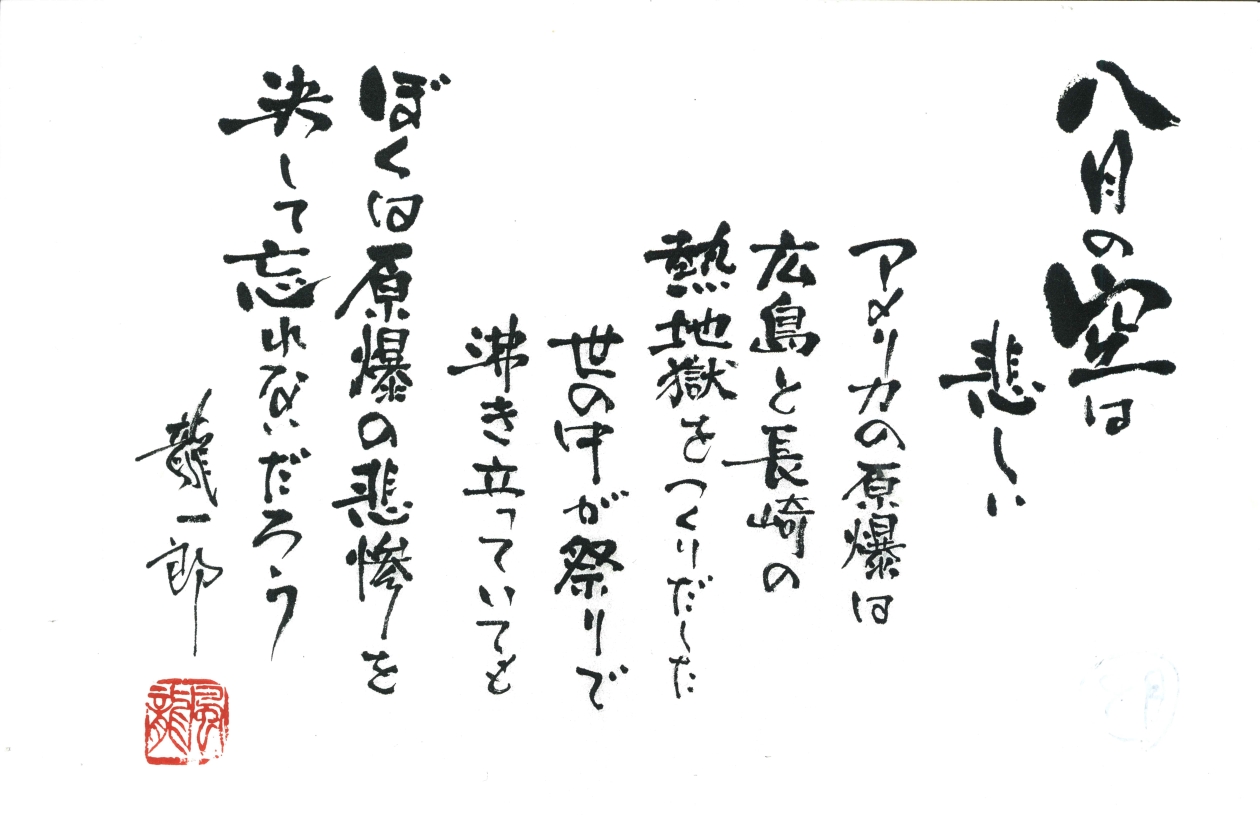 八月の空は
悲しい
アメリカの原爆は
広島と長崎の
熱地獄をつくりだした
世の中が祭りで
沸き立っていても
ぼくは原爆の悲惨を
決して忘れないだろう
龍一郎
風龍